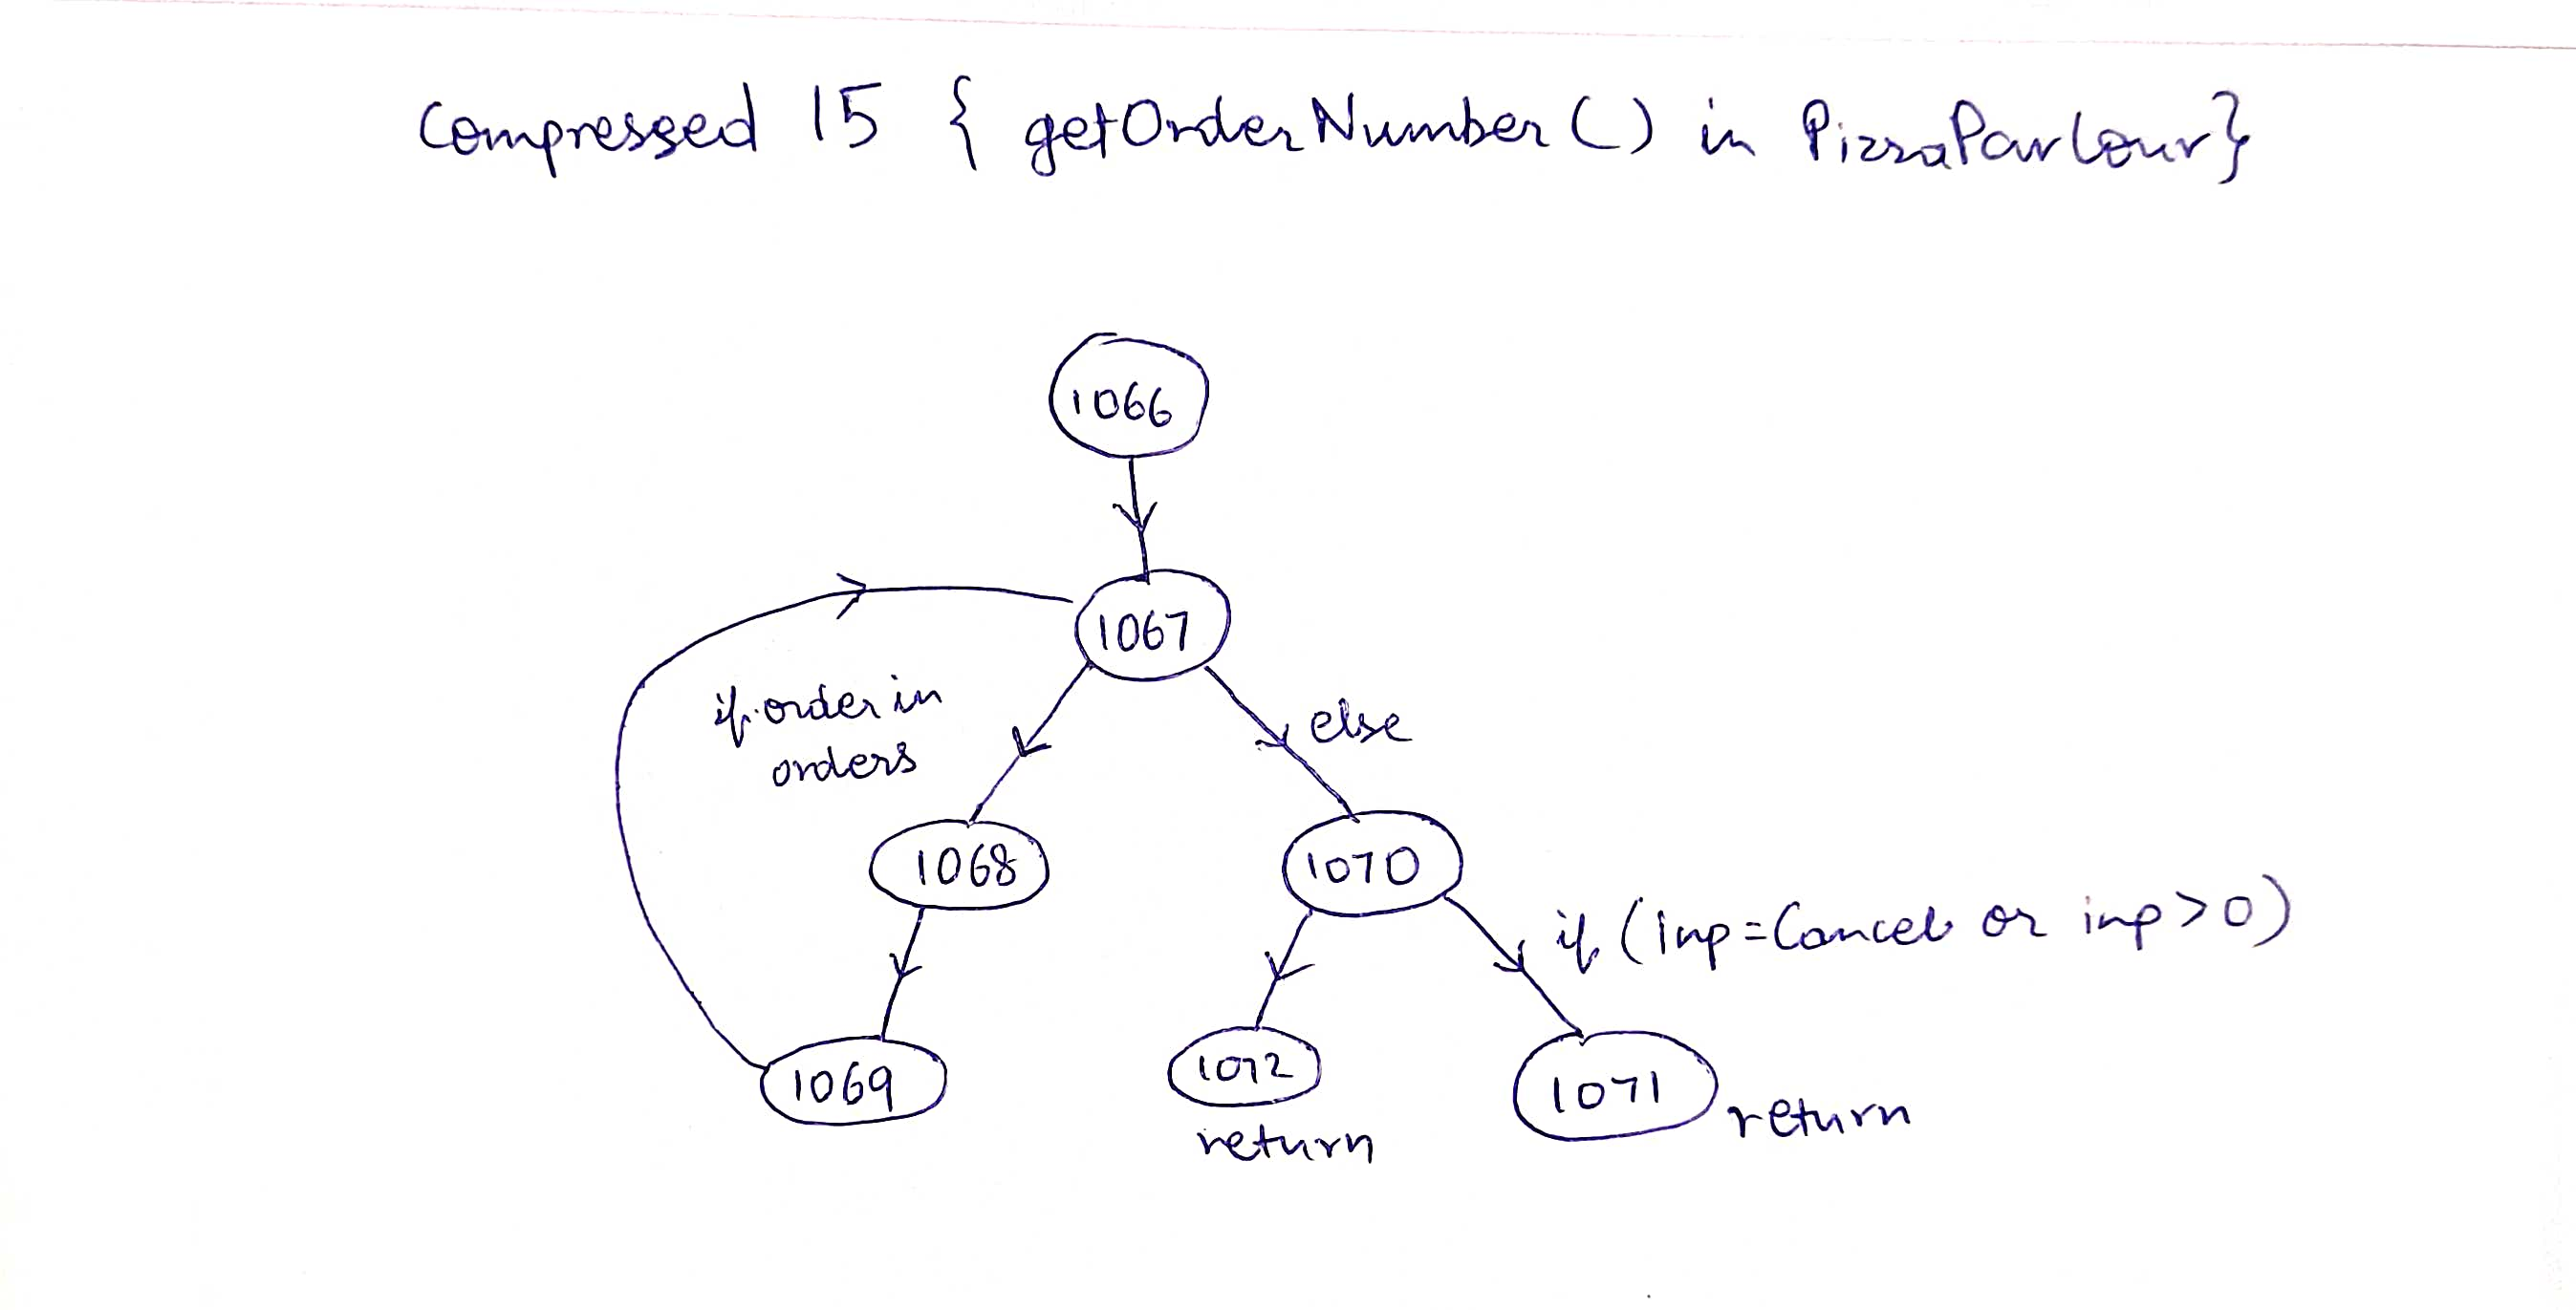 Compressed 15 { getOrderNumber() in PizzaParlour}
1066
1067
if order in
orders
else
1068
1070
if (inp=Cancel or inp>0)
1069
1072
1071
return
return